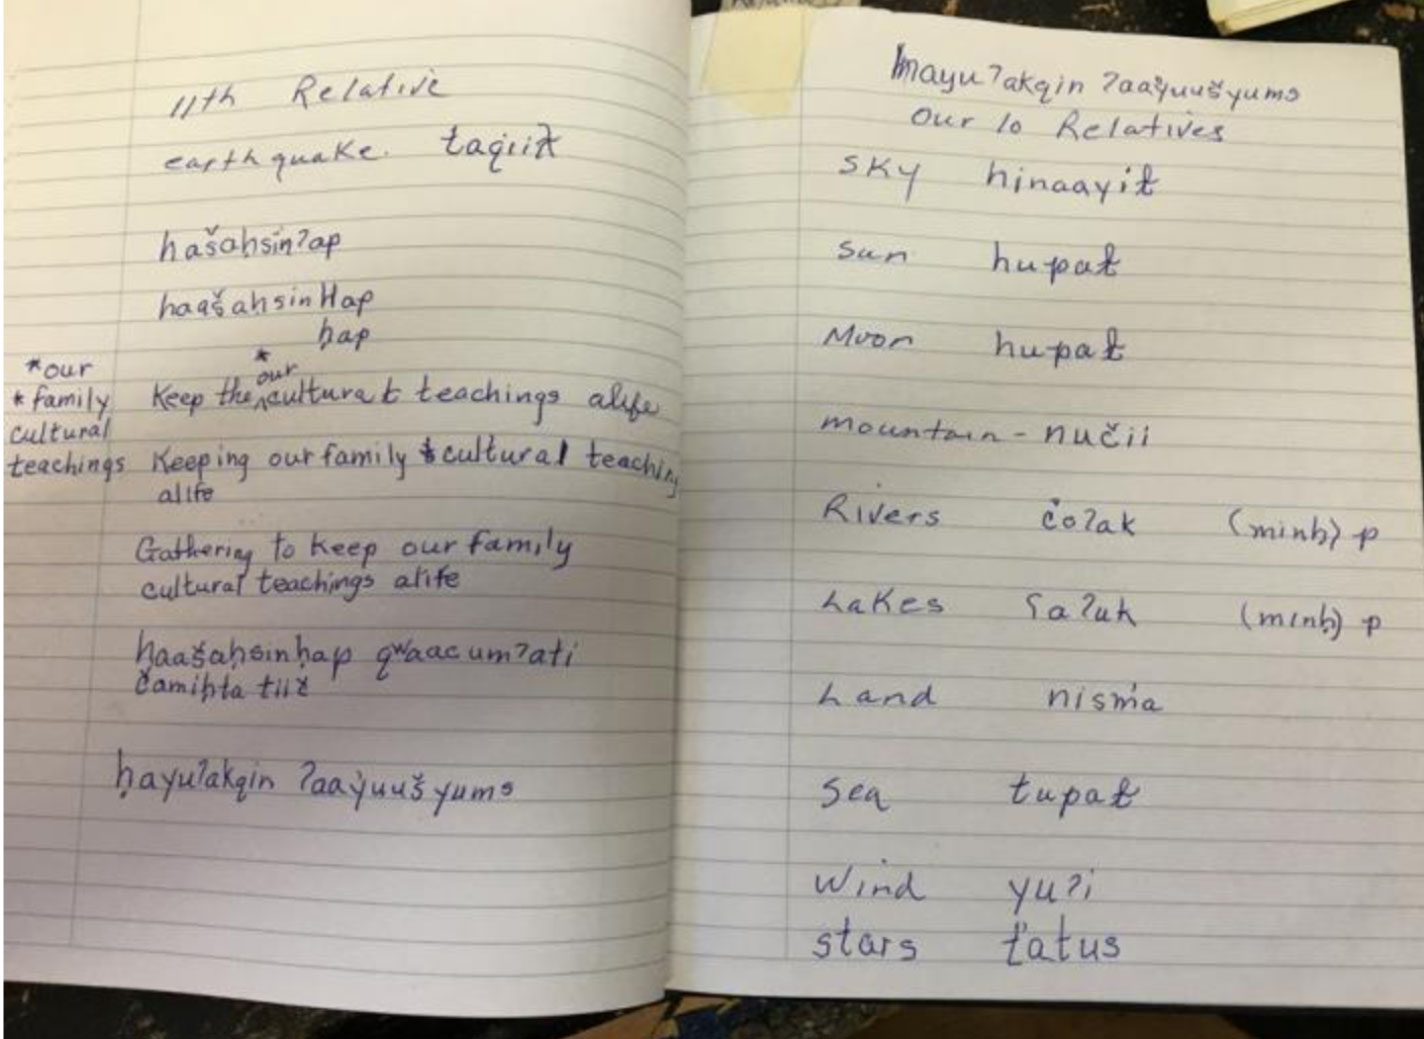 11th Relative
earthquake. t̓aqiiƛ
hašaḥsinʔap
haašaḥsinHap
ḥap
*our
* family
cultural
teachings
* our
Keep the ^ cultural teachings alife
Keeping our family & cultural teaching
alife
Gathering to keep our family
cultural teachings alife
ḥaašaḥsinḥap qʷaacumʔati
čamiḥta tiič
ḥayuʔakqin ʔaay̓uušyums
ḥayuʔakqin ʔaay̓uušyums
Our 10 Relatives
Sky hinaayił
Sun hupał
Moon hupał
mountain - nučii
Rivers c̓oʔak (minḥ) p
Lakes ʕaʔuk (minḥ) p
Land nism̓a
Sea tupał
Wind yuʔi
stars t̓atus